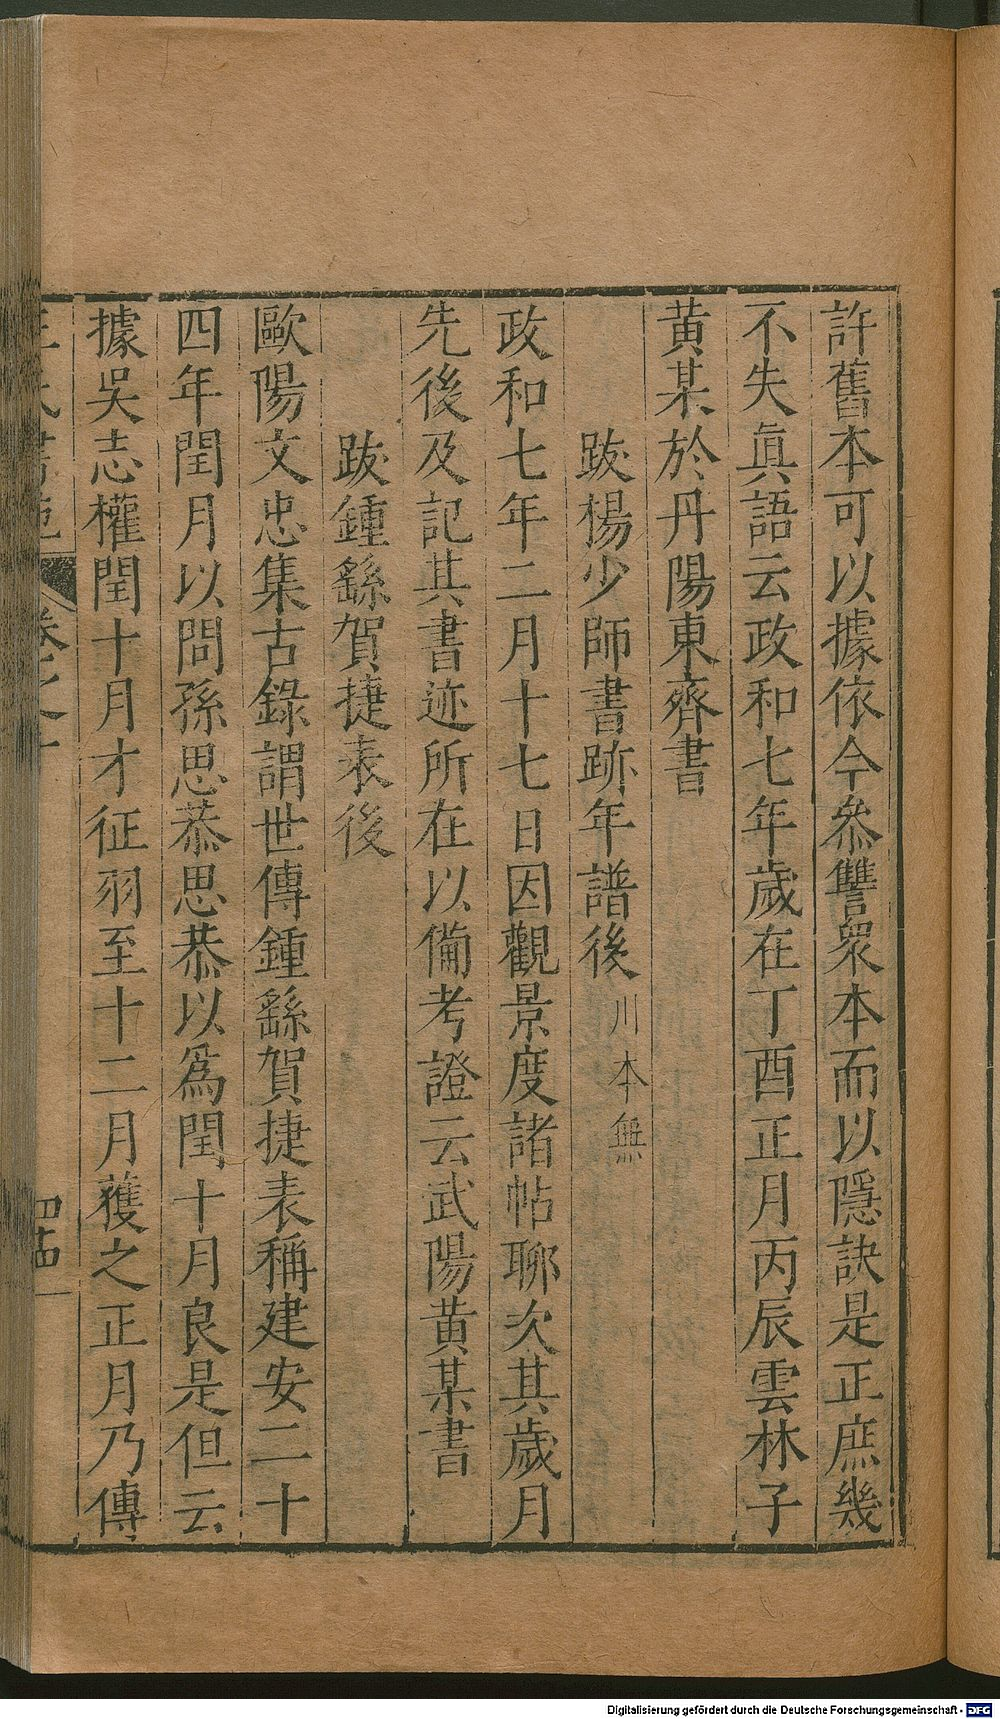 許舊本可以據依今叅讐衆本而以隱訣是正庶幾
不失眞語云政和七年歲在丁酉正月丙辰雲林子
黄某於丹陽東齊書
跋楊少師書跡年譜後 川本無
政和七年二月十七日因觀景度諸帖聊次其歲月
先後及記其書迹所在以備考證云武陽黄某書
跋鍾繇賀捷表後
歐陽文忠集古錄謂世傳鍾繇賀捷表稱建安二十
四年閏月以問孫思恭思恭以爲閏十月良是但云
據吳志權閏十月才征羽至十二月獲之正月乃傳
卷之
四十四
Digitalisierung gefördert durch die Deutsche Forschungsgemeinschaft - DFG